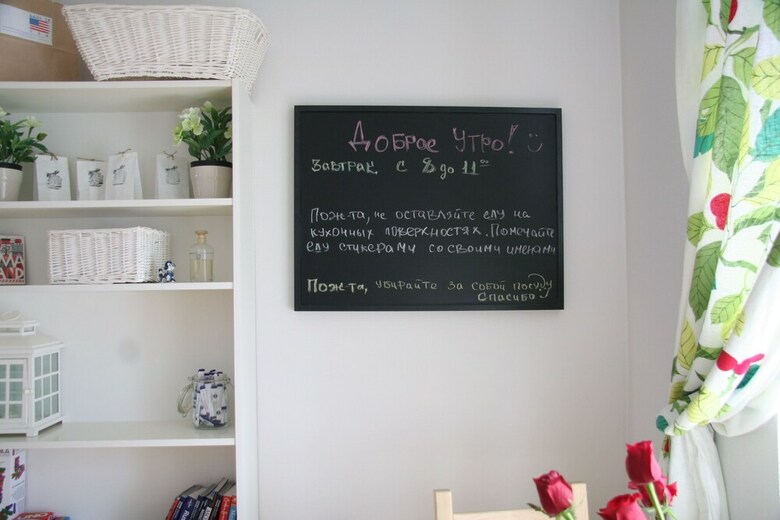 Доброе Утро!
Завтрак с 8 до 11⁰⁰
Пож-та, не оставляйте еду на
кухонных поверхностях. Помечайте
еду стикерами со своими именами
Пож-та, убирайте за собой посуду
Спасибо